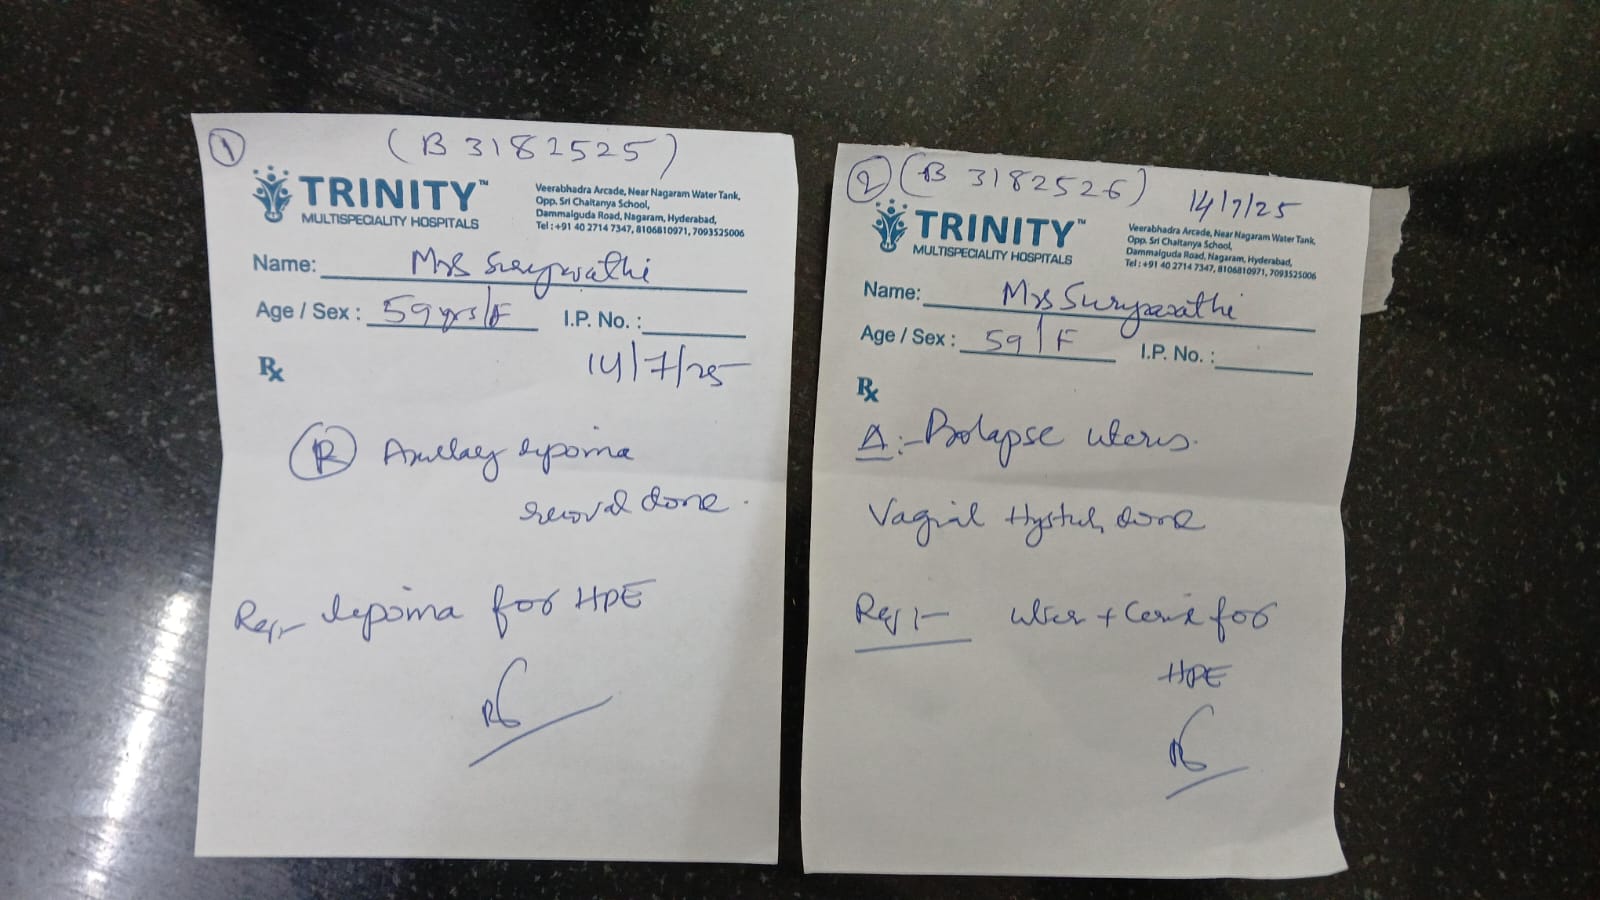 1
(B 3182525)
TRINITY™
MULTISPECIALITY HOSPITALS
Veerabhadra Arcade, Near Nagaram Water Tank,
Opp. Sri Chaitanya School,
Dammalguda Road, Nagaram, Hyderabad,
Tel : +91 40 2714 7347, 8106810971, 7093525006
Name: Mrs Suryavathi
Age / Sex : 59 yrs/F I.P. No. :
Rx
14/7/25
R Axillary lipoma
removal done.
Req:- lipoma for HPE
2
(B 3182526)
14/7/25
TRINITY™
MULTISPECIALITY HOSPITALS
Veerabhadra Arcade, Near Nagaram Water Tank,
Opp. Sri Chaitanya School,
Dammalguda Road, Nagaram, Hyderabad,
Tel : +91 40 2714 7347, 8106810971, 7093525006
Name: Mrs Suryavathi
Age / Sex : 59/F I.P. No. :
Rx
Δ:- Prolapse uterus.
Vaginal Hyst done
Req:- uterus + Cervix for
HPE